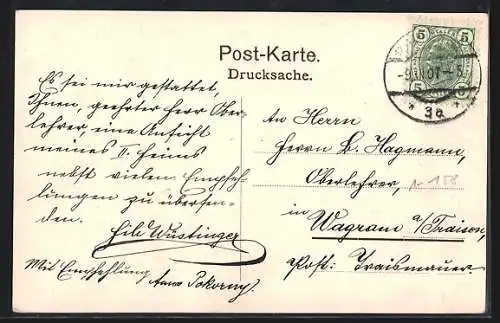 Post-Karte.
Drucksache.
Es sei mir gestattet,
Ihnen, geehrter Herr Ober-
lehrer eine Ansicht
meines II. Heims
nebst vielen Empfeh-
lungen zu übersen-
den.
Wüstinger
Mit Empfehlung Anna Pokorny.
5 5
5 5
-9. 07-5
3a
An Herrn
Herrn L. Hagmann,
Oberlehrer,
158
in
Wagram a/Traisen,
Post: Traismauer.